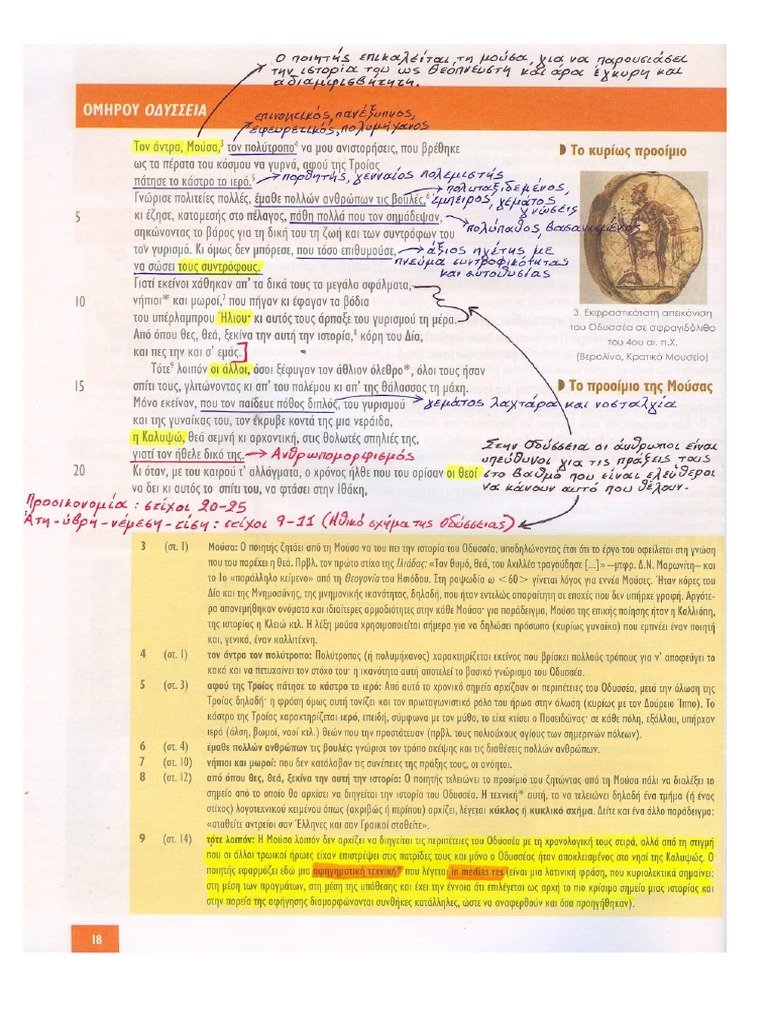 Ο ποιητής επικαλείται τη μούσα, για να παρουσιάσει
την ιστορία του ως θεόπνευστη και άρα έγκυρη και
αδιαμφισβήτητη.
ΟΜΗΡΟΥ ΟΔΥΣΣΕΙΑ
επινοητικός, πανέξυπνος,
εφευρετικός, πολυμήχανος
Τον άντρα, Μούσα,3 τον πολύτροπο4 να μου ανιστορήσεις, που βρέθηκε
ως τα πέρατα του κόσμου να γυρνά, αφού της Τροίας
πάτησε το κάστρο το ιερό.5
πορθητής, γενναίος πολεμιστής
Γνώρισε πολιτείες πολλές, έμαθε πολλών ανθρώπων τις βουλές,6
πολυταξιδεμένος,
έμπειρος, γεμάτος
γνώσεις
5 κι έζησε, καταμεσής στο πέλαγος, πάθη πολλά που τον σημάδεψαν,
πολύπαθος, βασανισμένος
σηκώνοντας το βάρος για τη δική του τη ζωή και των συντρόφων του
τον γυρισμό. Κι όμως δεν μπόρεσε, που τόσο επιθυμούσε,
άξιος ηγέτης με
πνεύμα συντροφικότητας
και αυτοθυσίας
να σώσει τους συντρόφους.
Γιατί εκείνοι χάθηκαν απ' τα δικά τους τα μεγάλα σφάλματα,
10 νήπιοι* και μωροί,7 που πήγαν κι έφαγαν τα βόδια
του υπέρλαμπρου Ήλιου· κι αυτός τους άρπαξε του γυρισμού τη μέρα.
Από όπου θες, θεά, ξεκίνα την αυτή την ιστορία,8 κόρη του Δία,
και πες την και σ' εμάς.
Τότε9 λοιπόν οι άλλοι, όσοι ξέφυγαν τον άθλιον όλεθρο*, όλοι τους ήσαν
15 σπίτι τους, γλιτώνοντας κι απ' του πολέμου κι απ' της θάλασσας τη μάχη.
Μόνο εκείνον, που τον παίδευε πόθος διπλός, του γυρισμού
γεμάτος λαχτάρα και νοσταλγία
και της γυναίκας του, τον έκρυβε κοντά της μια νεράιδα,
η Καλυψώ, θεά σεμνή κι αρχοντική, στις θολωτές σπηλιές της,
γιατί τον ήθελε δικό της.
Ανθρωπομορφισμός
20 Κι όταν, με του καιρού τ' αλλάγματα, ο χρόνος ήλθε που του ορίσαν οι θεοί
να δει κι αυτός το σπίτι του, να φτάσει στην Ιθάκη,
Το κυρίως προοίμιο
3. Εκφραστικότατη απεικόνιση
του Οδυσσέα σε σφραγιδόλιθο
του 4ου αι. π.Χ.
(Βερολίνο, Κρατικό Μουσείο)
Το προοίμιο της Μούσας
Στην Οδύσσεια οι άνθρωποι είναι
υπεύθυνοι για τις πράξεις τους
στο βαθμό που είναι ελεύθεροι
να κάνουν αυτό που θέλουν.
Προοικονομία : στίχοι 20-25
Άτη-ύβρη-νέμεση-τίση : στίχοι 9-11 (Ηθικό σχήμα της Οδύσσειας)
3 (στ. 1) Μούσα: Ο ποιητής ζητάει από τη Μούσα να του πει την ιστορία του Οδυσσέα, υποδηλώνοντας έτσι ότι το έργο του οφείλεται στη γνώση
που του παρέχει η θεά. Πρβλ. τον πρώτο στίχο της Ιλιάδας: «Τον θυμό, θεά, του Αχιλλέα τραγούδησε [...]» –μτφρ. Δ.Ν. Μαρωνίτη– και
το 1ο «παράλληλο κείμενο» από τη Θεογονία του Ησιόδου. Στη ραψωδία ω <60> γίνεται λόγος για εννέα Μούσες. Ήταν κόρες του
Δία και της Μνημοσύνης, της μνημονικής ικανότητας, δηλαδή, που ήταν εντελώς απαραίτητη σε εποχές που δεν υπήρχε γραφή. Αργότε-
ρα απονεμήθηκαν ονόματα και ιδιαίτερες αρμοδιότητες στην κάθε Μούσα· για παράδειγμα, Μούσα της επικής ποίησης ήταν η Καλλιόπη,
της ιστορίας η Κλειώ κτλ. Η λέξη μούσα χρησιμοποιείται σήμερα για να δηλώσει πρόσωπο (κυρίως γυναίκα) που εμπνέει έναν ποιητή
και, γενικά, έναν καλλιτέχνη.
4 (στ. 1) τον άντρα τον πολύτροπο: Πολύτροπος (ή πολυμήχανος) χαρακτηρίζεται εκείνος που βρίσκει πολλούς τρόπους για ν' αποφεύγει το
κακό και να πετυχαίνει τον στόχο του· η ικανότητα αυτή αποτελεί το βασικό γνώρισμα του Οδυσσέα.
5 (στ. 3) αφού της Τροίας πάτησε το κάστρο το ιερό: Από αυτό το χρονικό σημείο αρχίζουν οι περιπέτειες του Οδυσσέα, μετά την άλωση της
Τροίας δηλαδή· η φράση όμως αυτή τονίζει και τον πρωταγωνιστικό ρόλο του ήρωα στην άλωση (κυρίως με τον Δούρειο Ίππο). Το
κάστρο της Τροίας χαρακτηρίζεται ιερό, επειδή, σύμφωνα με τον μύθο, το είχε κτίσει ο Ποσειδώνας· σε κάθε πόλη, εξάλλου, υπήρχαν
ιερά (άλση, βωμοί, ναοί κτλ.) θεών που την προστάτευαν (πρβλ. τους πολιούχους αγίους των σημερινών πόλεων).
6 (στ. 4) έμαθε πολλών ανθρώπων τις βουλές: γνώρισε τον τρόπο σκέψης και τις διαθέσεις πολλών ανθρώπων.
7 (στ. 10) νήπιοι και μωροί: που δεν κατάλαβαν τις συνέπειες της πράξης τους, οι ανόητοι.
8 (στ. 12) από όπου θες, θεά, ξεκίνα την αυτή την ιστορία: Ο ποιητής τελειώνει το προοίμιό του ζητώντας από τη Μούσα πάλι να διαλέξει το
σημείο από το οποίο θα αρχίσει να διηγείται την ιστορία του Οδυσσέα. Η τεχνική* αυτή, το να τελειώνει δηλαδή ένα τμήμα (ή ένας
στίχος) λογοτεχνικού κειμένου όπως (ακριβώς ή περίπου) αρχίζει, λέγεται κύκλος ή κυκλικό σχήμα. Δείτε και ένα άλλο παράδειγμα:
«σταθείτε αντρείοι σαν Έλληνες και σαν Γραικοί σταθείτε».
9 (στ. 14) τότε λοιπόν: Η Μούσα λοιπόν δεν αρχίζει να διηγείται τις περιπέτειες του Οδυσσέα με τη χρονολογική τους σειρά, αλλά από τη στιγμή
που οι άλλοι τρωικοί ήρωες είχαν επιστρέψει στις πατρίδες τους και μόνο ο Οδυσσέας ήταν αποκλεισμένος στο νησί της Καλυψώς. Ο
ποιητής εφαρμόζει εδώ μια αφηγηματική τεχνική* που λέγεται in medias res (είναι μια λατινική φράση, που κυριολεκτικά σημαίνει:
στη μέση των πραγμάτων, στη μέση της υπόθεσης και έχει την έννοια ότι επιλέγεται ως αρχή το πιο κρίσιμο σημείο μιας ιστορίας και
στην πορεία της αφήγησης διαμορφώνονται συνθήκες κατάλληλες, ώστε να αναφερθούν και όσα προηγήθηκαν).
18